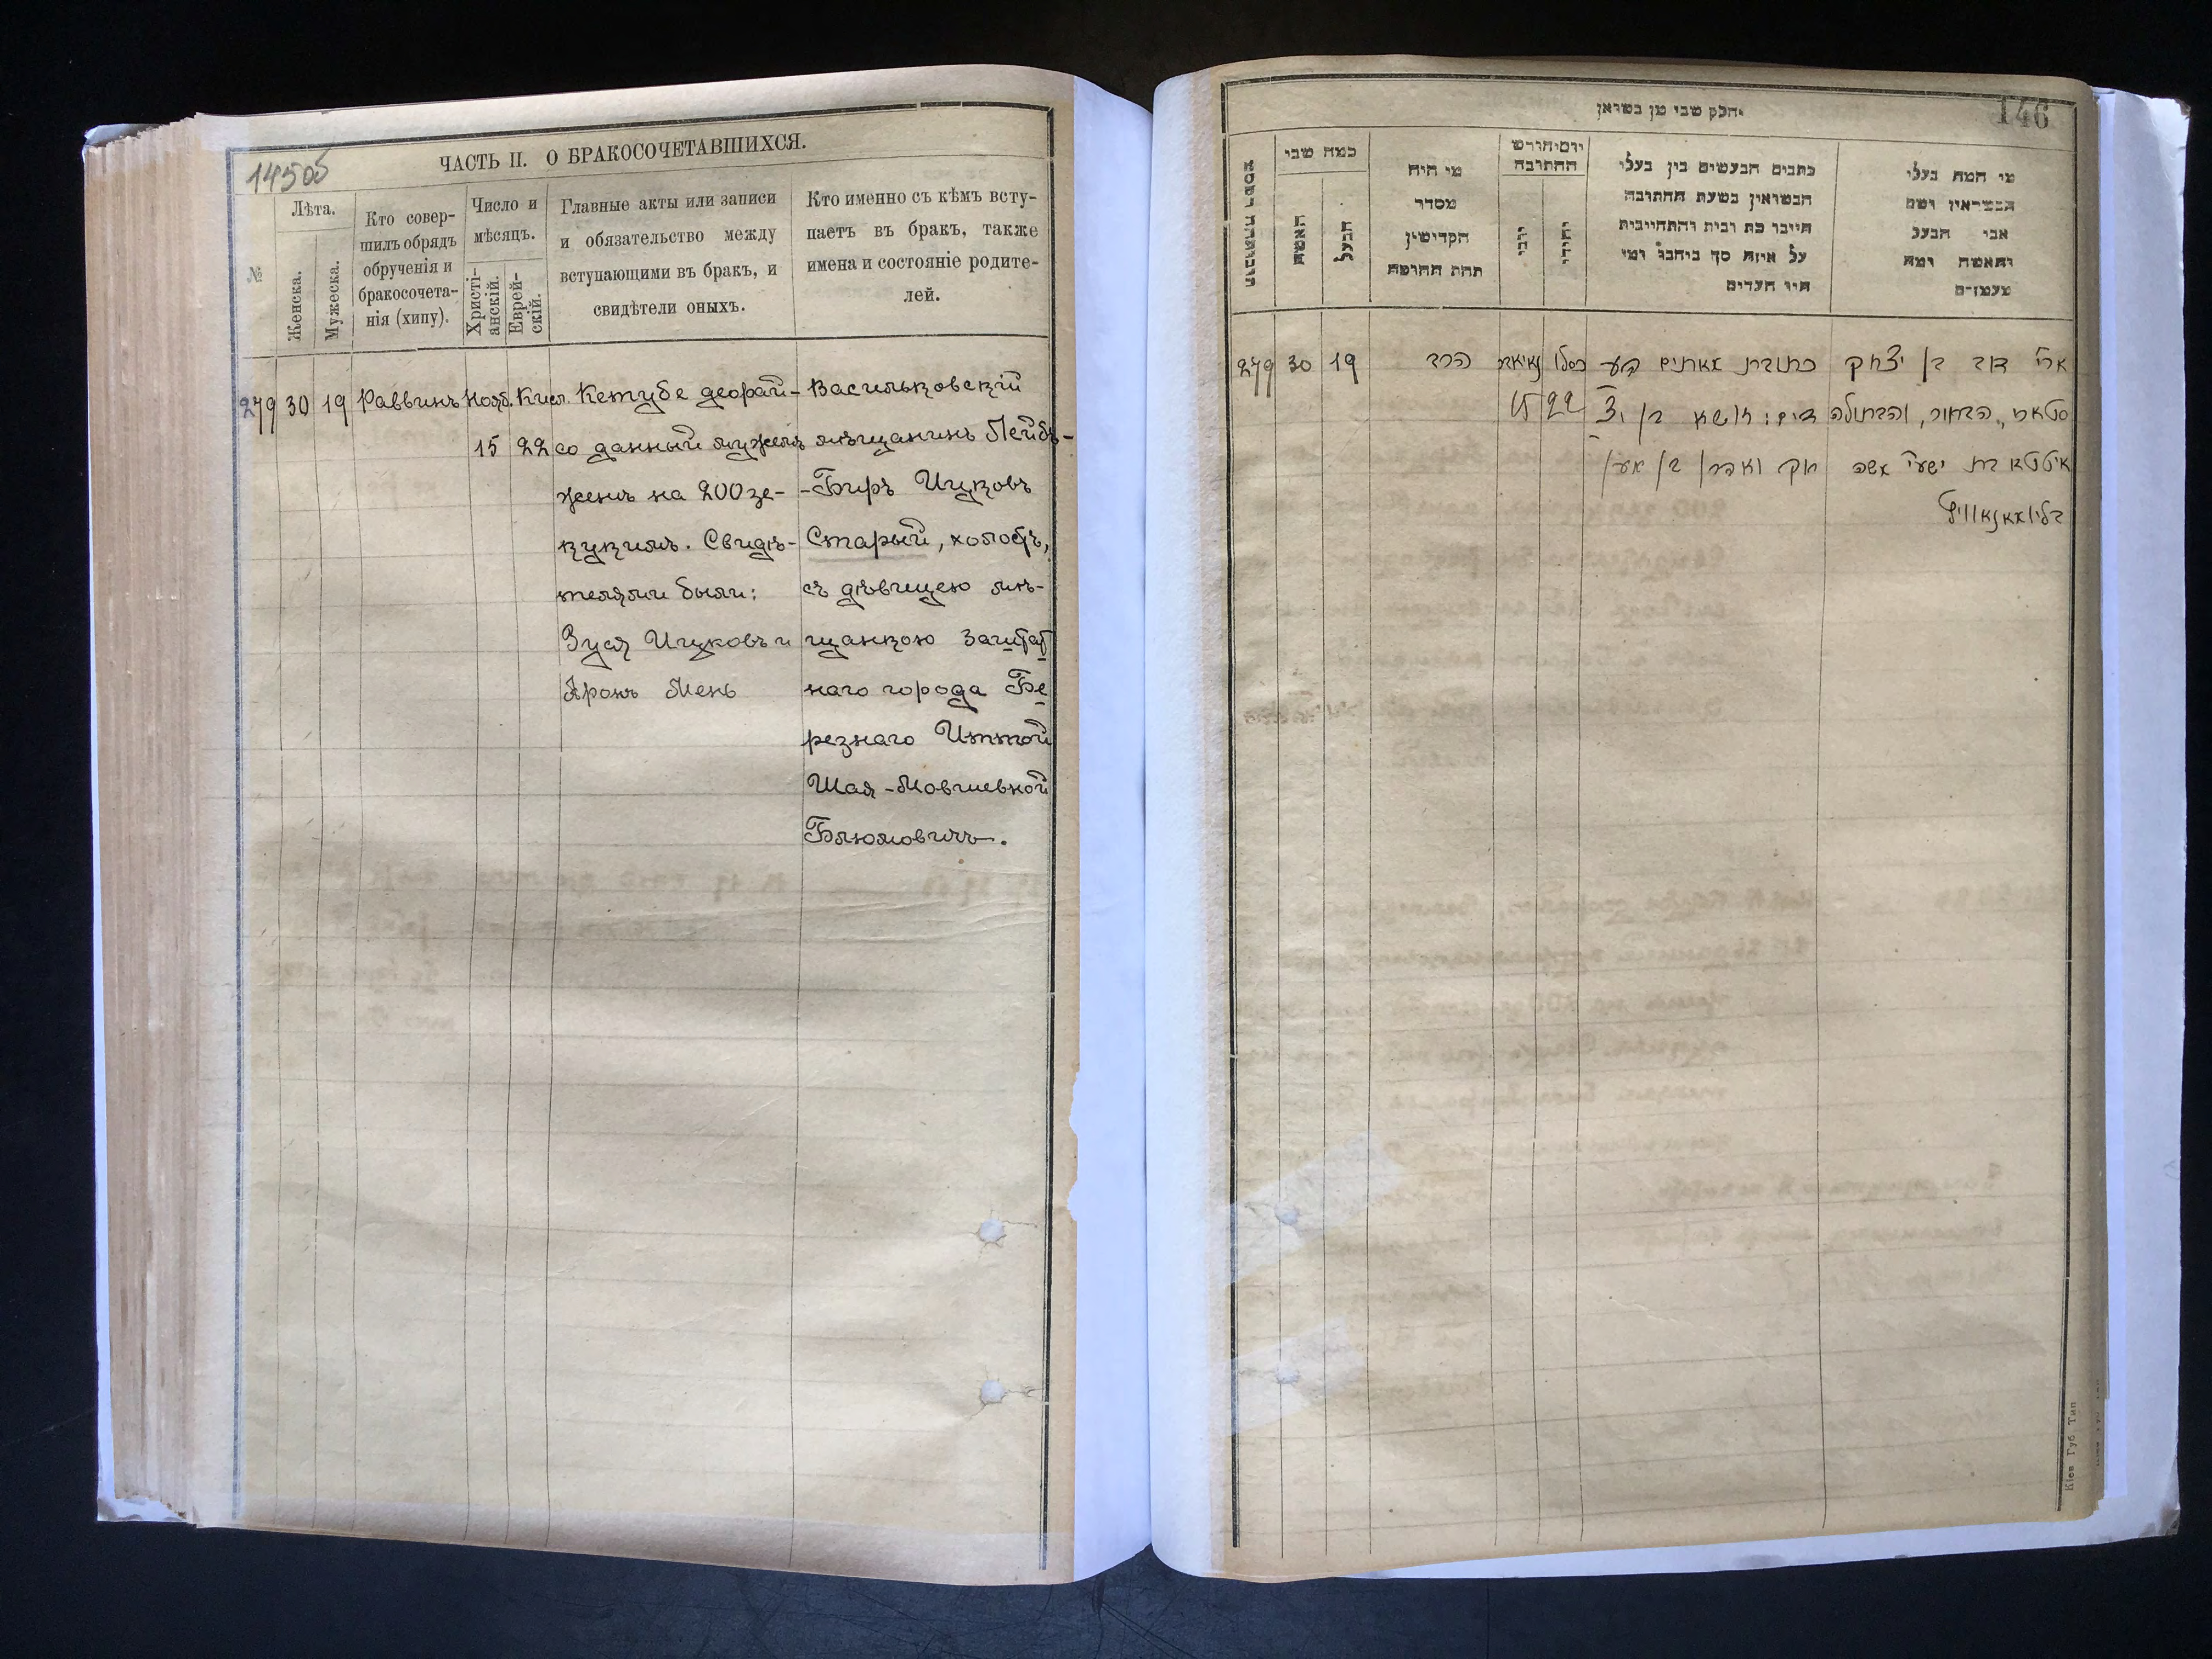 145об
ЧАСТЬ II. О БРАКОСОЧЕТАВШИХСЯ.
№
Лѣта.
Женска.
Мужеска.
Кто совер-
шилъ обрядъ
обрученія и
бракосочета-
нія (хипу).
Число и
мѣсяцъ.
Христі-
анскій.
Еврей-
скій.
Главные акты или записи
и обязательство между
вступающими въ брак, и
свидѣтели оныхъ.
Кто именно съ кѣмъ всту-
паетъ въ бракъ, также
имена и состояніе родите-
лей.
279 30 19 Раввинъ Нояб. Кисл.
15 22
Кетубе деорай-
со данный мужемъ
женѣ на 200 зе-
кукимъ. Свидѣ-
телями были:
Зуся Ицковъ и
Аронъ Мень
Васильковскій
мѣщанинъ Лейбъ-
-Беръ Ицковъ
Старый, холостъ,
съ дѣвицею мѣ-
щанкою заштат
наго города Бе
резнаго Иттой
Шая-Мовшевной
Блюмовичъ.
146
חלק שני מן נשואין
האשה
הבעל
כמה שני
מי היה
מסדר
הקדושין
תחת החופה
יום וחודש
החתונה
יוני
יהודי
כתבים הנעשים בין בעלי
הנשואין בשעת החתונה
חייבו כת ובית והתחייבות
על איזה סך ביחבו ומי
היו העדים
מי המה בעלי
הנשואין ושם
אבי הבעל
והאשה ומה
מעמדם
279 30 19 הרב
15 22 כסלו
כתובת מאתים
ארי דוב בן יצחק
סטארי, הבחור, והבתולה
איטטא בת ישעי' משה
Кіев Губ Тип